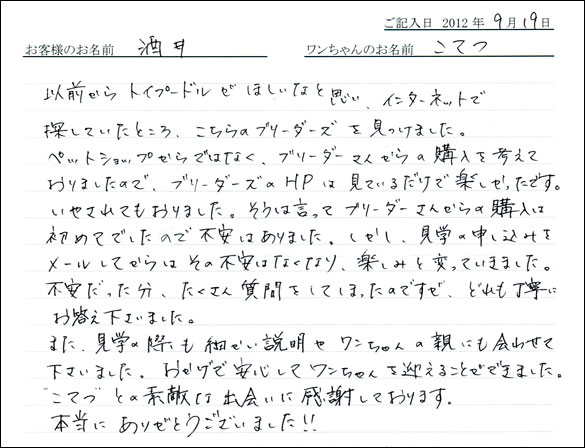 ご記入日 2012年 9月19日
お客様のお名前 酒井 ワンちゃんのお名前 こてつ
以前から トイプードルが ほしいなと 思い、インターネットで
探していたところ、こちらのブリーダーズ を見つけました。
ペットショップからではなく、ブリーダーさんからの購入を考えて
おりましたので、ブリーダーズのHPは見ているだけで楽しかったです。
いやされてもおりました。そうは言ってブリーダーさんからの購入は
初めてでしたので不安はありました。しかし、見学の申し込みを
メールしてからは その不安はなくなり、楽しみと変っていきました。
不安だった分、たくさん質問をしてしまったのですが、どれも丁寧に
お答え下さいました。
また、見学の際にも 細かい説明や ワンちゃんの親にも会わせて
下さいました。おかげで安心してワンちゃんを迎えることができました。
"こてつ"との素敵な出会いに感謝しております。
本当に ありがとうございました!!